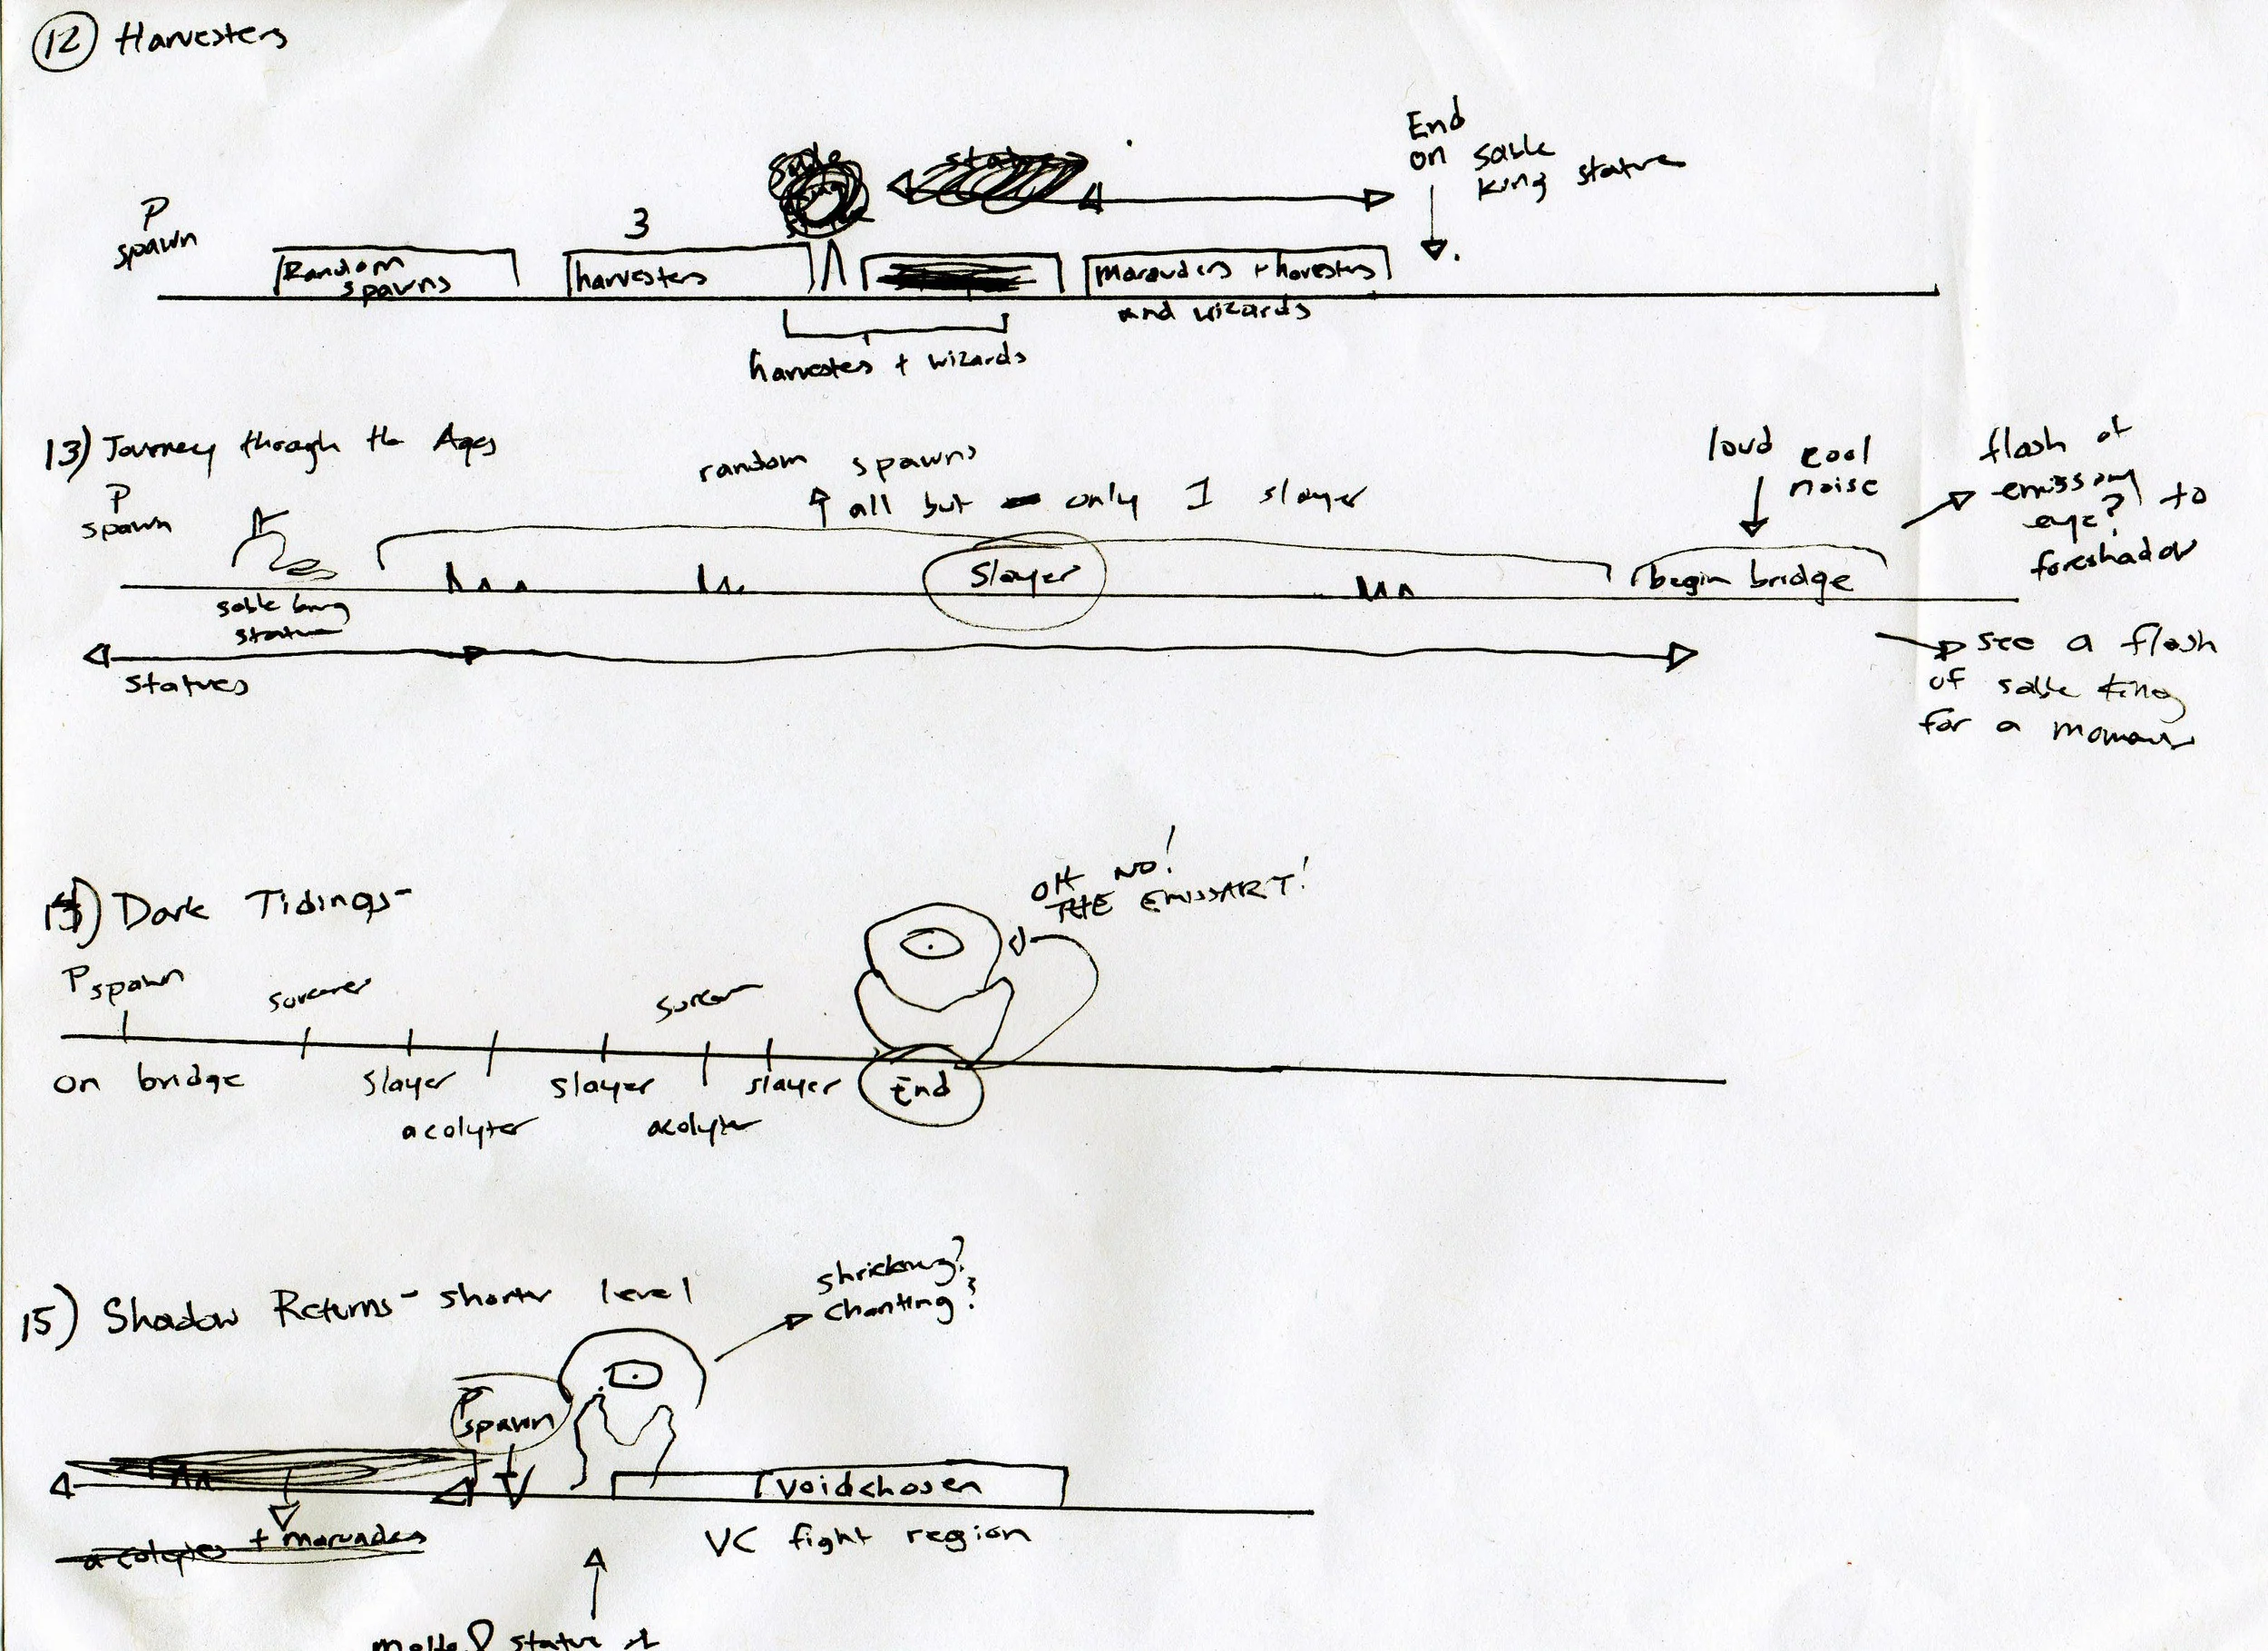 12 Harvesters
End
on sable
king statue
P
spawn
3
Random
spawns
harvesters
Marauders + harvesters
and wizards
harvestes + wizards
13) Journey through the Ages
random spawns
all but only 1 slayer
loud cool
noise
flash of
emissary
eye? to
foreshadow
P
spawn
sable king
statue
Slayer
begin bridge
statues
see a flash
of sable king
for a moment
14) Dark Tidings-
OH NO!
THE EMISSARY!
P spawn
sorcerer
on bridge
slayer
acolyte
slayer
acolyte
slayer
End
15) Shadow Returns - shorter level
shrieking?
chanting?
P
spawn
voidchosen
acolytes + marauders
VC fight region
statue